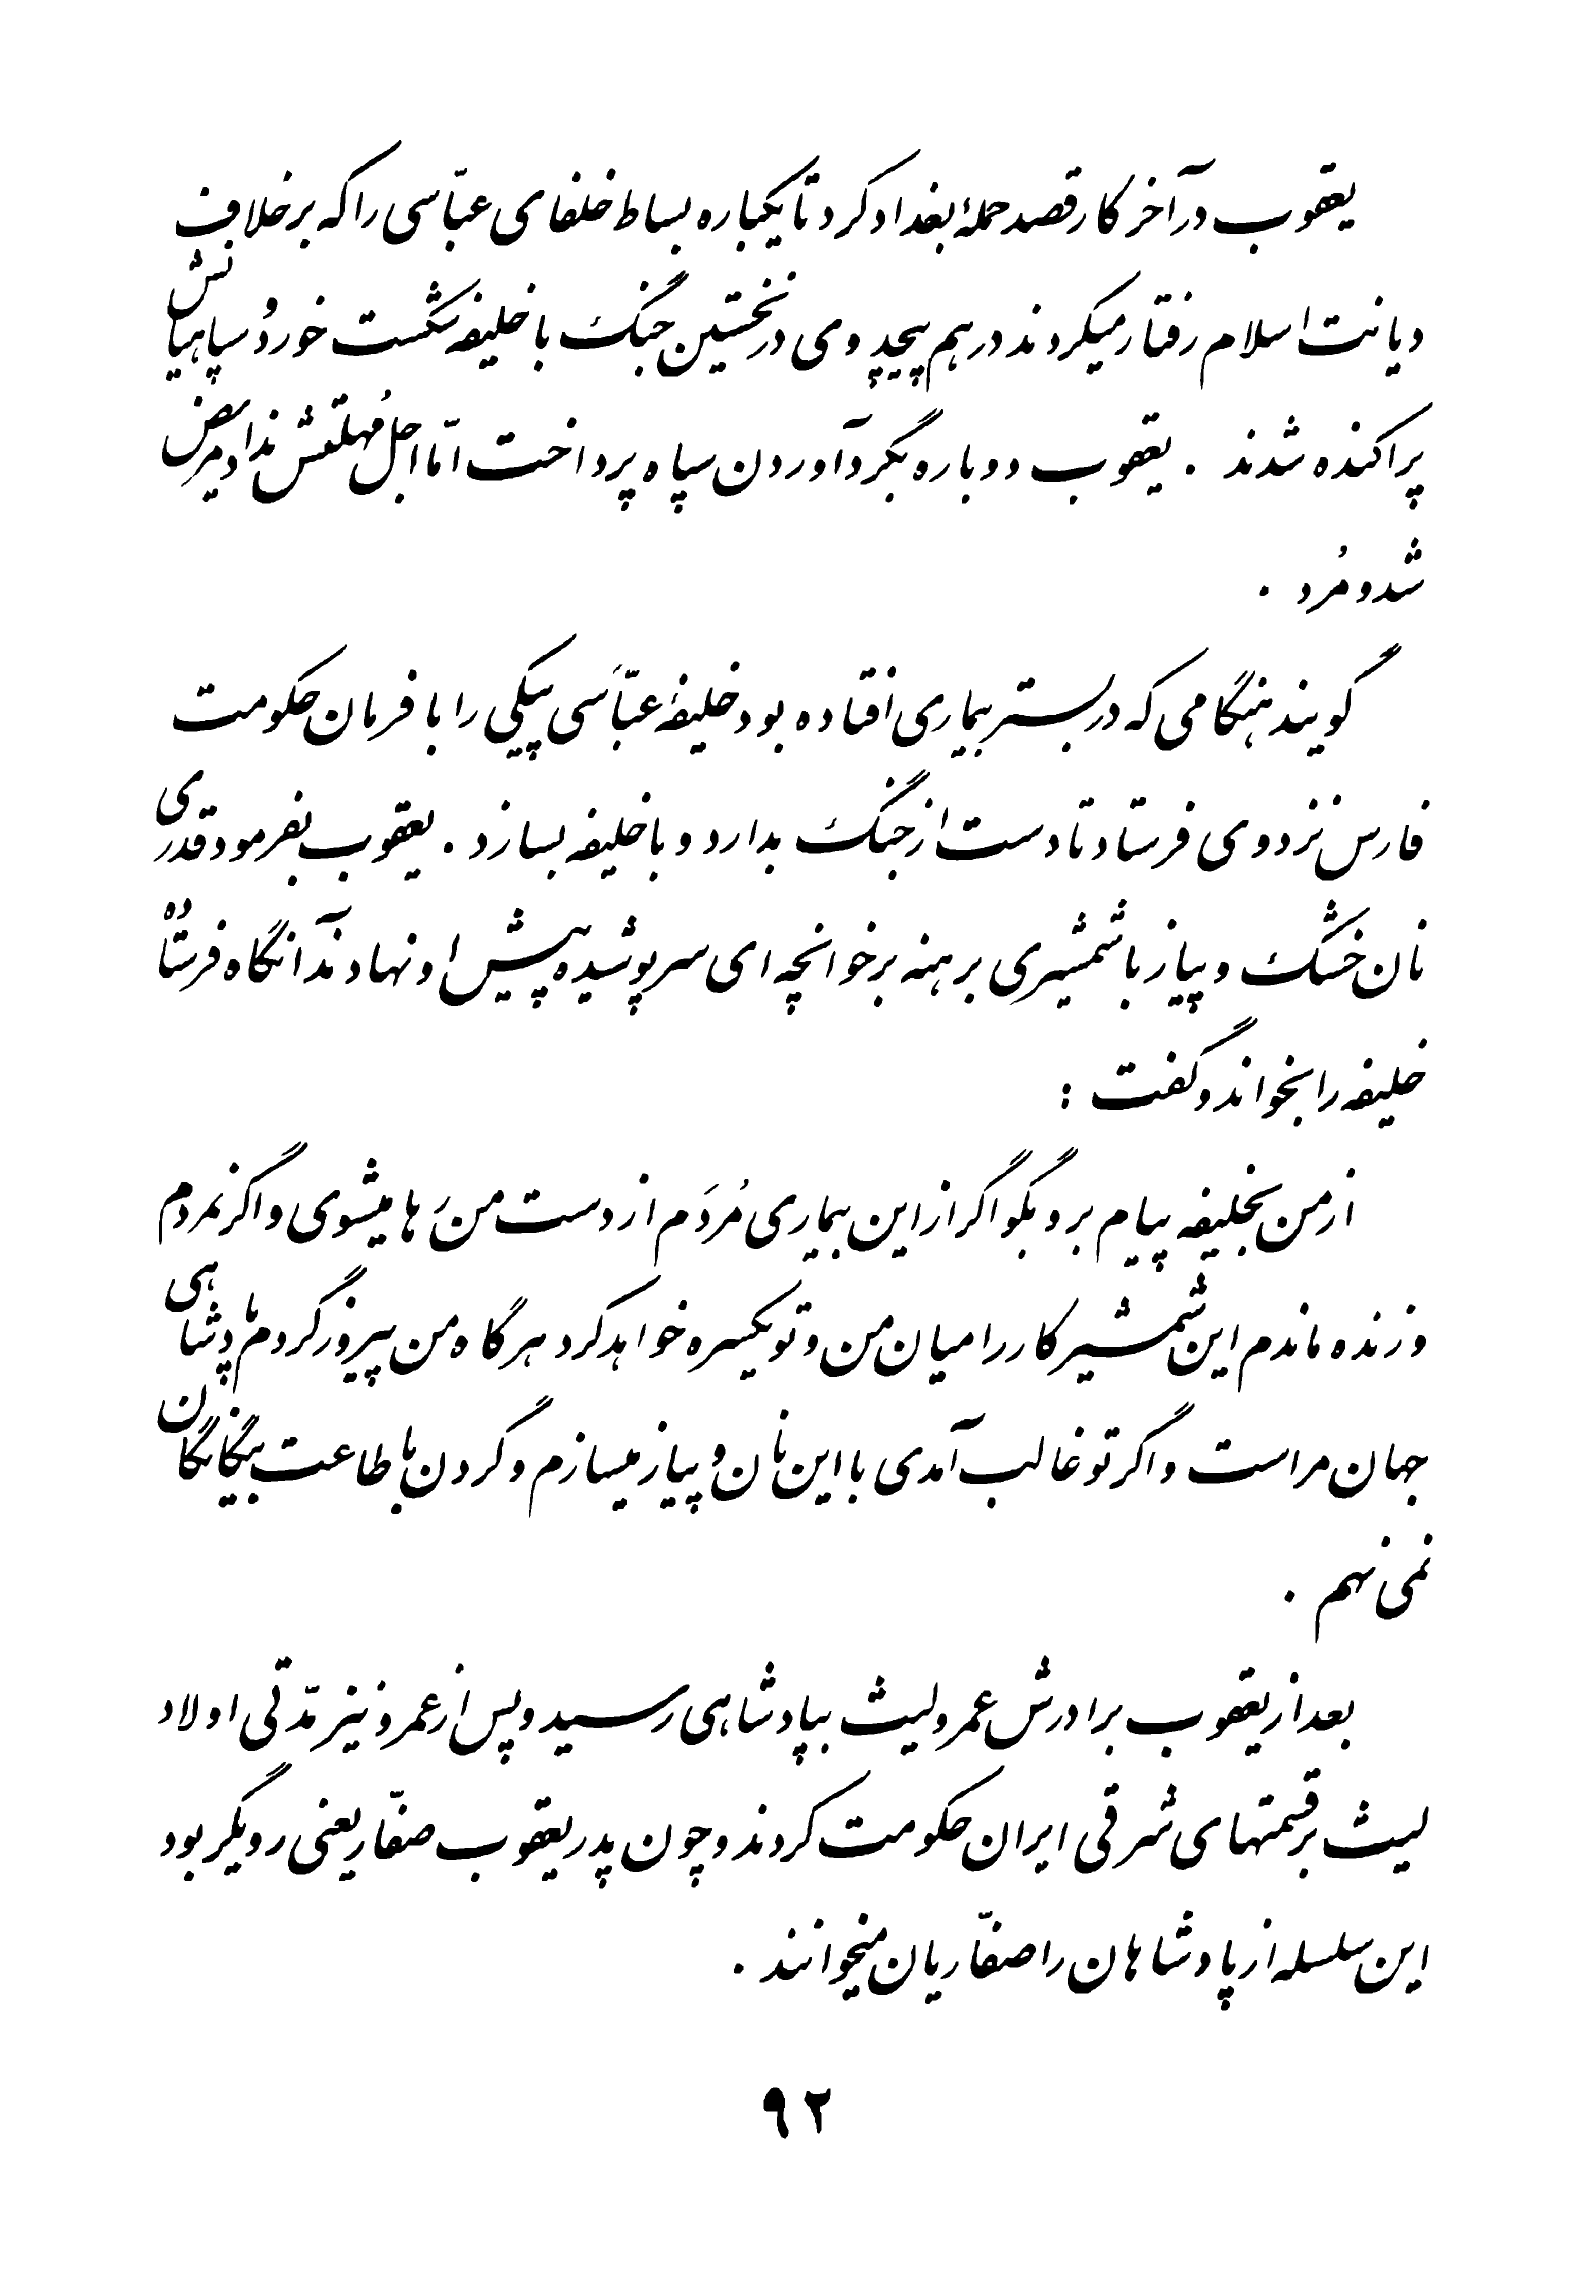 یعقوب در آخر کار قصد حملهٔ بغداد کرد تا یکباره بساط خلفای عبّاسی را که بر خلاف
دیانت اسلام رفتار میکردند در هم پیچد وی در نخستین جنگ با خلیفه شکست خورد و سپاهیانش
پراکنده شدند . یعقوب دوباره بگرد آوردن سپاه پرداخت امّا اجل مُهلتش نداد مریض
شد و مُرد .
گویند هنگامی که در بستر بیماری افتاده بود خلیفهٔ عبّاسی پیکی را با فرمان حکومت
فارس نزد وی فرستاد تا دست از جنگ بدارد و با خلیفه بسازد . یعقوب بفرمود قدری
نان خشک و پیاز با شمشیری برهنه بر خوانچه ای سرپوشیده پیش او نهادند آنگاه فرستادهٔ
خلیفه را بخواند و گفت :
از من بخلیفه پیام بر و بگو اگر از این بیماری مُردَم از دست من رَها میشوی و اگر نمردم
و زنده ماندم این شمشیر کار را میان من و تو یکسره خواهد کرد هرگاه من پیروز گردم پادشاهی
جهان مراست و اگر تو غالب آمدی با این نان و پیاز میسازم و گردن باطاعت بیگانگان
نمی نهم .
بعد از یعقوب برادرش عمرولیث بپادشاهی رسید و پس از عمرو نیز مدّتی اولاد
لیث بر قسمتهای شرقی ایران حکومت کردند و چون پدر یعقوب صفّار یعنی رویگر بود
این سلسله از پادشاهان را صفّاریان میخوانند .
۹۲